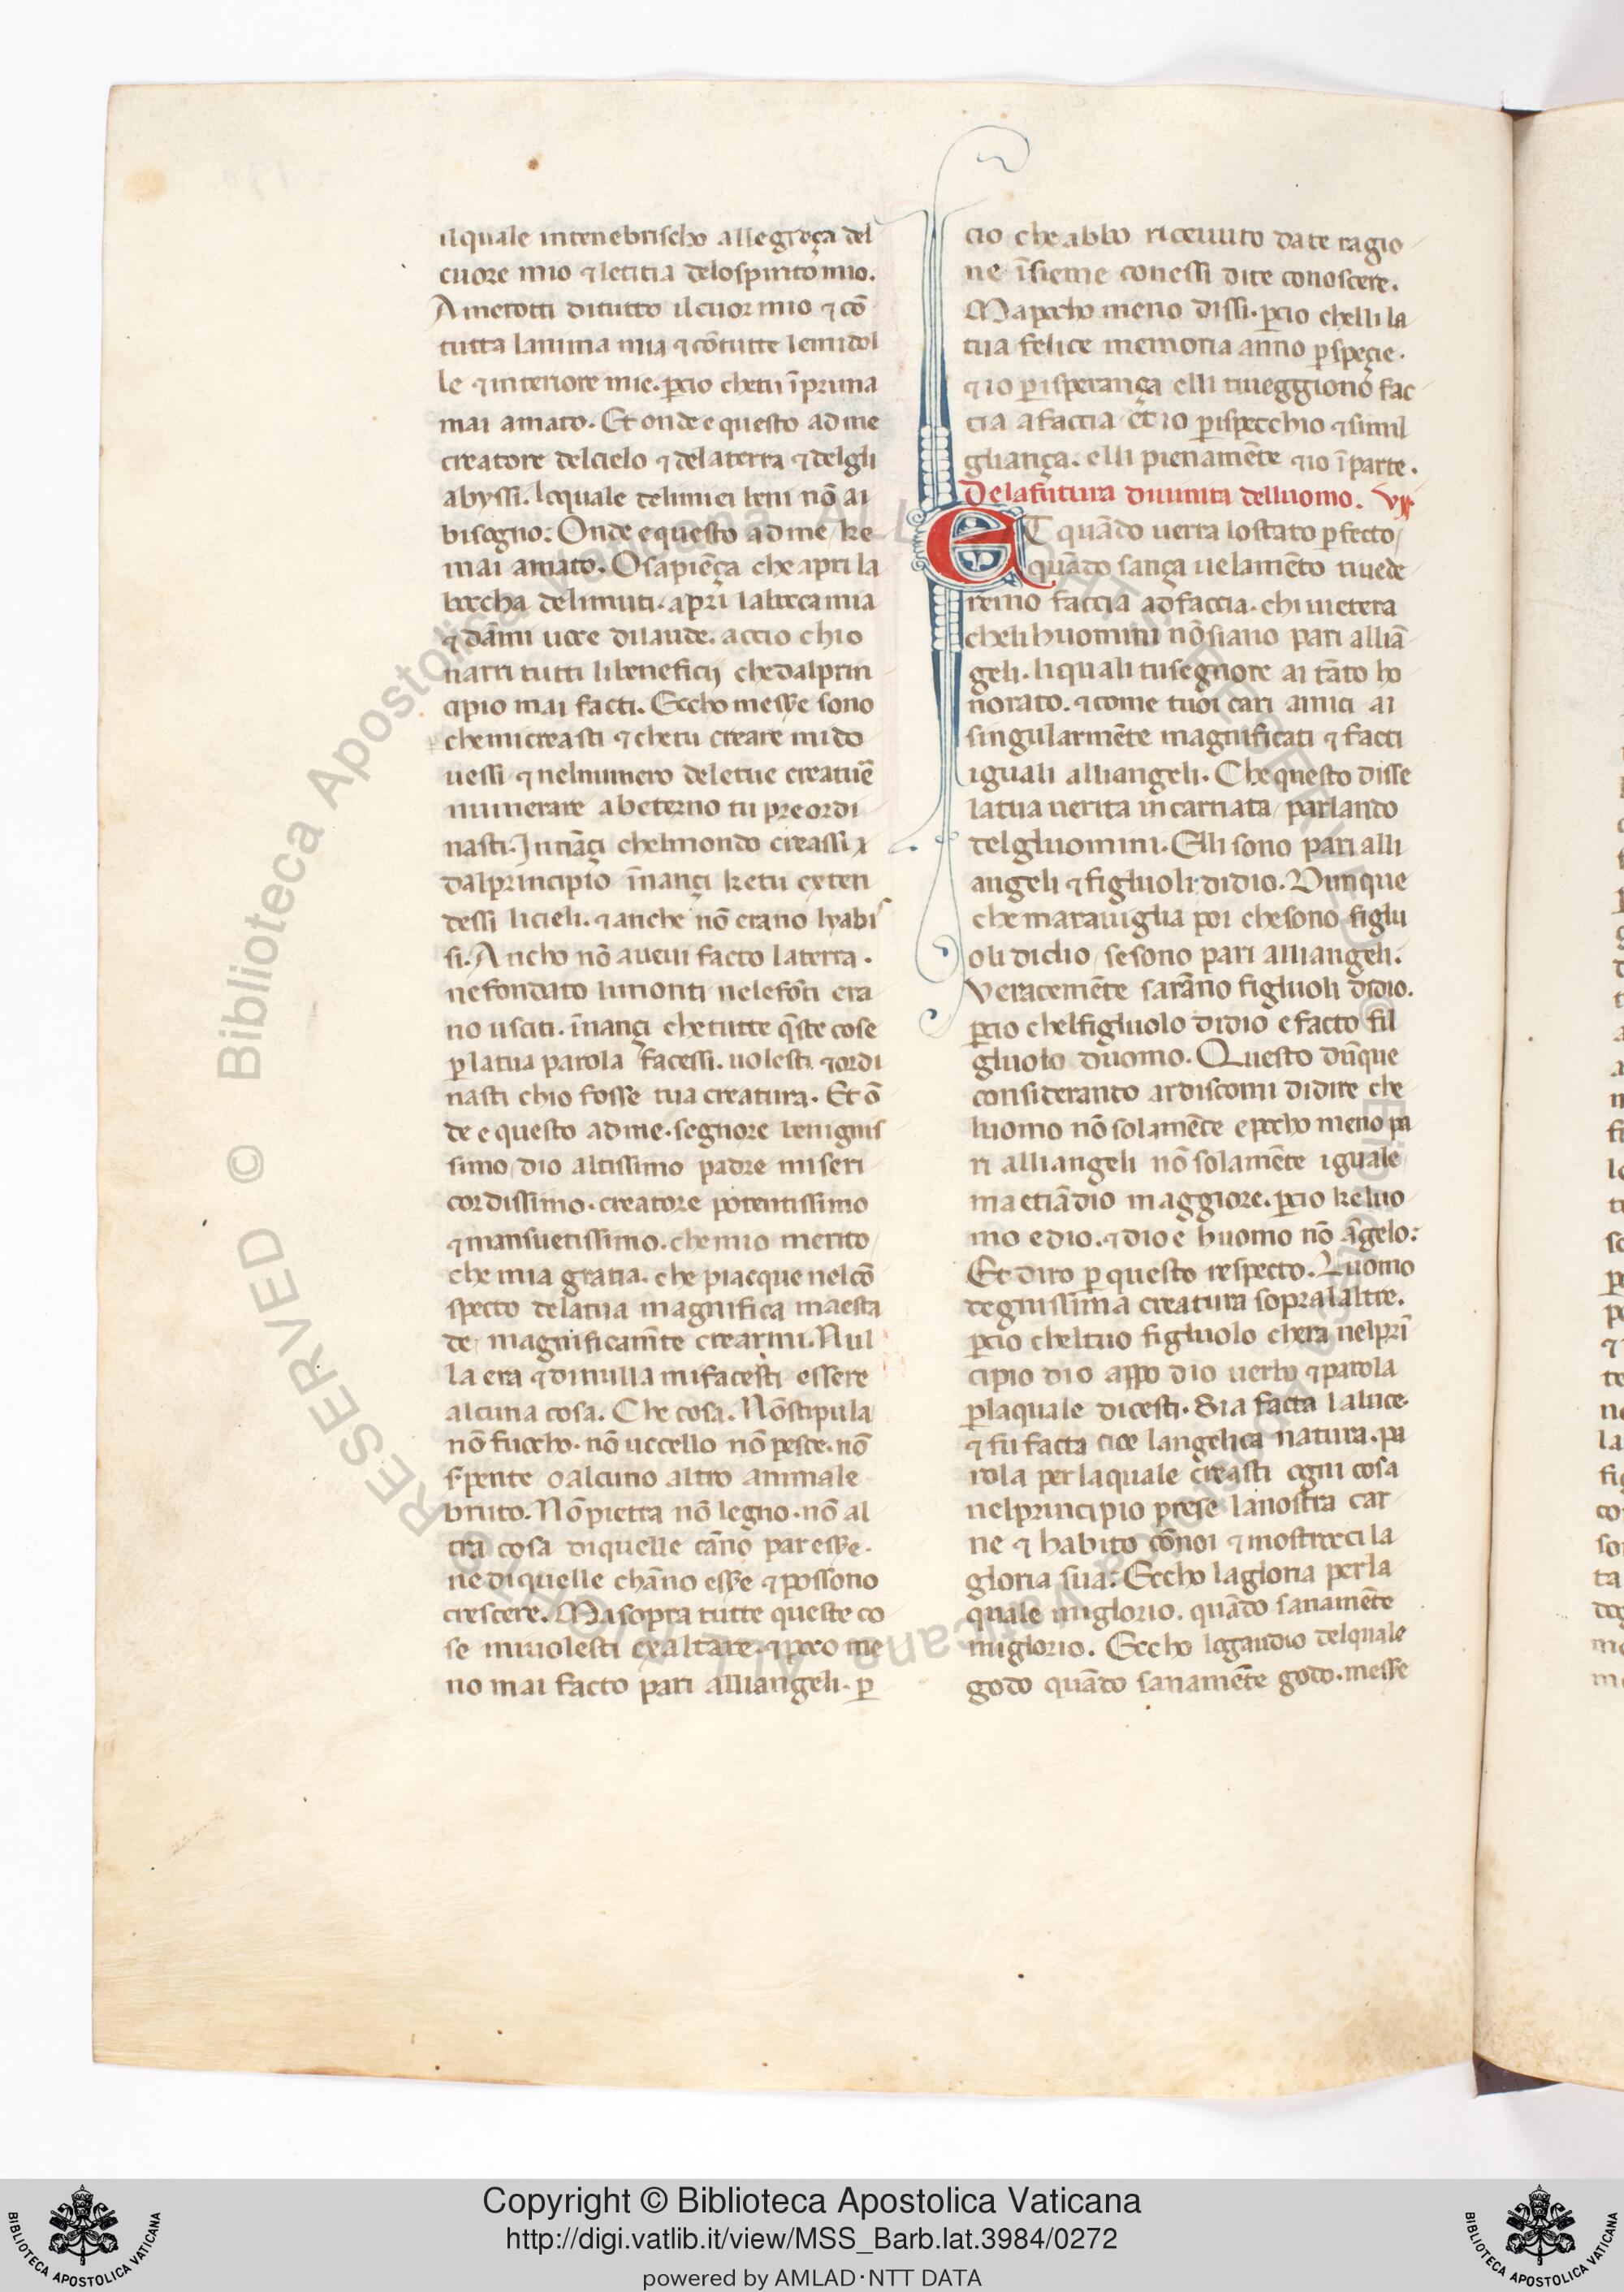 ilquale intenebrischo allegreça del
cuore mio ⁊ letitia delospirito mio.
Amerotti ditutto ilcuor mio ⁊ cō
tutta lanima mia ⁊ cōtutte lemidol
le ⁊ interiore mie. ꝑcio chetu īprima
mai amato. Et onde e questo ad me
creatore delcielo ⁊ delaterra ⁊ delgli
abyssi. lequale delimiei beni nō ai
bisogno: Onde e questo ad me ke
mai amato. O sapiēça che apri la
boccha delimuti. apri labocca mia
⁊ dāmi uoce dilaude. accio chio
narri tutti libeneficij chedalprin
cipio mai facti. Eccho messe sono
chemicreasti ⁊ chetu creare mi do
uessi ⁊ nelnumero deletue creatuē
numerare abeterno tu preordi
nasti. Innāçi chelmondo creassi ⁊
dalprincipio īnançi ketu exten
dessi licieli. ⁊ anche nō erano lyabis
si. Ancho nō aueui facto laterra.
nefondato limonti nelefōti era
no usciti. īnançi chetutte q̄ste cose
ꝑ latua parola facessi. uolesti ⁊ ordi
nasti chio fosse tua creatura. Et ō
de e questo ad me. segnore benignis
simo dio altissimo padre miseri
cordissimo. creatore potentissimo
⁊ mansuetissimo. che mio merito
che mia gratia. che piacque nelcō
specto delatua magnifica maesta
de magnificamēte crearmi. Nul
la era ⁊ dinulla mifacesti essere
alcuna cosa. Che cosa. Nōstipula
nō fuocho. nō uccello nō pesce. nō
s̄pente o alcuno altro animale
bruto. Nō pietra nō legno. nō al
tra cosa diquelle cāno par esse.
ne di quelle chāno esse ⁊ possono
crescere. Ma sopra tutte queste co
se miuolesti exaltare. ⁊ poco me
no mai facto pari alliangeli. ꝑ
cio che abbo riceuuto da te ragio
ne īsieme conessi dite conoscere.
Ma pocho meno dissi. ꝑcio chelli la
tua felice memoria anno ꝑ speçie.
⁊ io ꝑ isperança elli tiueggiono fac
cia afaccia et io ꝑ ispecchio ⁊ simil
gliança. elli pienamēte ⁊ io ī parte.
Delafutura diuinita delluomo.
ET quādo uerra lostato ꝑfecto
quādo sança uelamēto tiuede
remo faccia adfaccia. chi uietera
cheli huomini nō siano pari alliā
geli. liquali tu segnore ai tāto ho
norato. ⁊ come tuoi cari amici ai
singularmēte magnificati ⁊ facti
iguali alliangeli. Che questo disse
latua uerita incarnata parlando
delgluomini. Elli sono pari alli
angeli ⁊ figluoli didio. Dunque
che marauiglia poi chesono figlu
oli didio se sono pari alliangeli.
Veracemēte sarāno figluoli didio.
ꝑcio chelfigluolo didio e facto fil
gluolo duomo. Questo dūque
considerando ardiscomi didire che
luomo nō solamēte e pocho meno pa
ri alliangeli nō solamēte iguale
ma etiādio maggiore. ꝑcio keluo
mo e dio. ⁊ dio e huomo nō āgelo:
Et diro ꝑ questo respecto. Luomo
degnissima creatura sopralaltre.
ꝑcio cheltuo figluolo chera nelprī
cipio dio appo dio uerbo ⁊ parola
ꝑlaquale dicesti. Sia facta laluce.
⁊ fu facta cioe langelica natura. pa
rola perlaquale creasti ogni cosa
nelprincipio prese lanostra car
ne ⁊ habito cōnoi ⁊ mostrocci la
gloria sua: Eccho lagloria perla
quale miglorio. quādo sanamēte
miglorio. Eccho logaudio delquale
godo quādo sanamēte godo. messe
Copyright © Biblioteca Apostolica Vaticana
http://digi.vatlib.it/view/MSS_Barb.lat.3984/0272
powered by AMLAD·NTT DATA
BIBLIOTECA APOSTOLICA VATICANA
BIBLIOTECA APOSTOLICA VATICANA